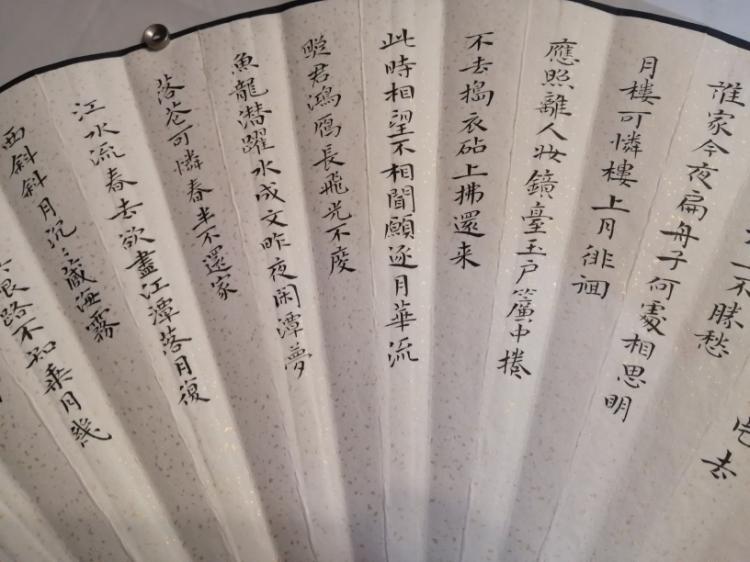 片去
不勝愁
誰家今夜扁舟子何處相思明
月樓可憐樓上月徘徊
應照離人妝鏡臺玉戶簾中捲
不去搗衣砧上拂還来
此時相望不相聞願逐月華流
君鴻雁長飛光不度
魚龍潛躍水成文昨夜闲潭夢
落花可憐春半不還家
江水流春去欲盡江潭落月復
西斜斜月沉:藏海霧
限路不知乘月幾